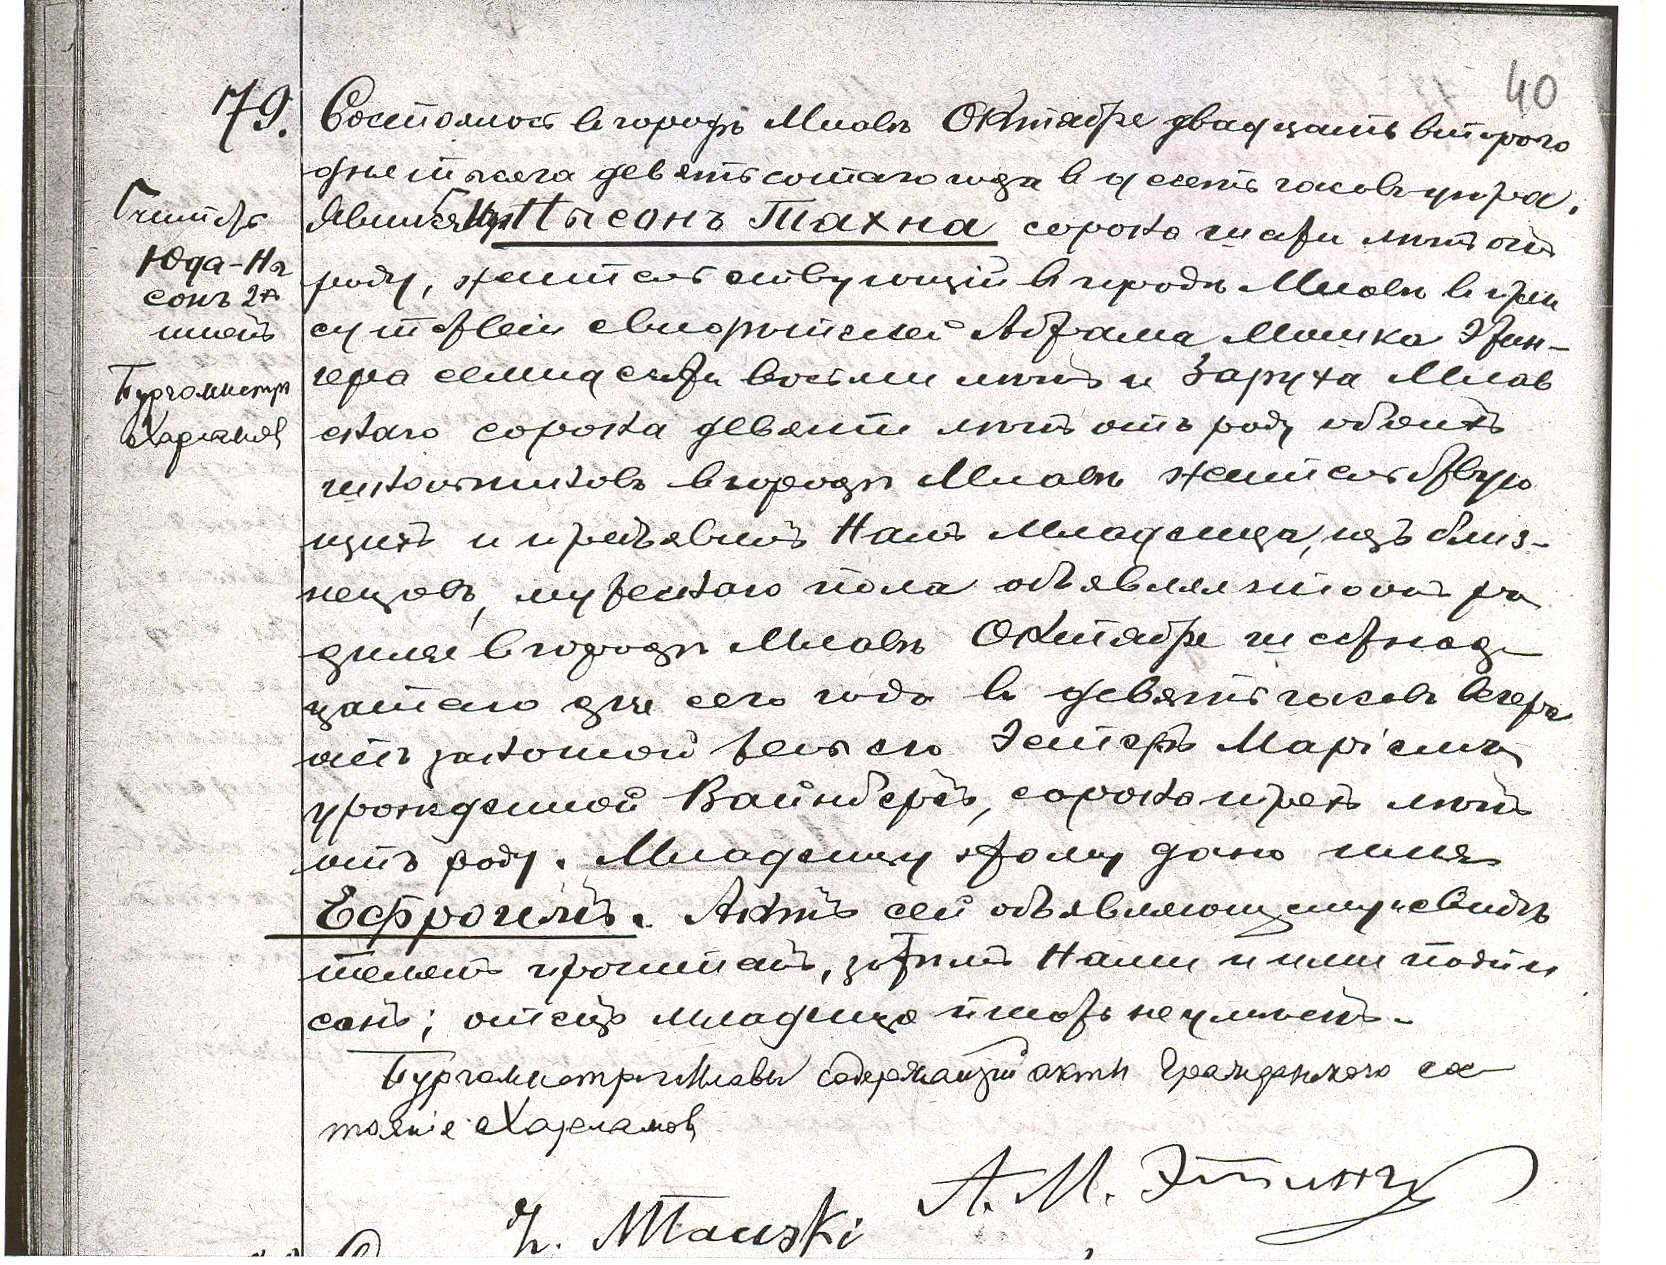 40
79.
Состоялось въ городѣ Млавѣ Октября двадцать второго
дня тысяча девятьсотаго года въ десять часовъ утра.
Явился Нысонъ Тахна сорока шести лѣтъ отъ
роду, жительствующій въ городѣ Млавѣ въ при
сутствіи свидѣтелей Абрама Мошка Этин-
гера семидесяти восьми лѣтъ и Заруха Млав
скаго сорока девяти лѣтъ отъ роду обоихъ
школьниковъ въ городѣ Млавѣ жительствую
щихъ и предъявилъ Намъ младенца, изъ близ-
нецовъ, мужескаго пола объявляя что онъ ро
дился въ городѣ Млавѣ Октября шестнад-
цатаго дня сего года въ девять часовъ вечера
отъ законной жены его Эстеръ Маріемъ
урожденной Вайнбергъ, сорока трехъ лѣтъ
отъ роду. Младенцу этому дано имя
Ефроимъ. Актъ сей объявляющему и свидѣ
телямъ прочитанъ, затѣмъ Нами и ими подпи
санъ; отецъ младенца писать не умѣетъ.-
Бургомистръ г. Млавы содержащій акты Гражданскаго со
стоянія Харламов
А. М. Этингер
Z. Mławski
Юда-Ны
сонъ 2хъ
имёнъ
Бургомистръ
Харламов